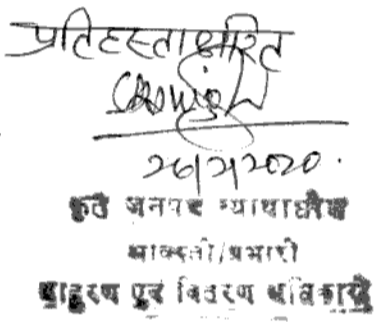 प्रतिहस्ताक्षरित
26/2/2020.
कृते जनपद न्यायाधीश
श्रावस्ती/प्रभारी
आहरण एवं वितरण अधिकारी